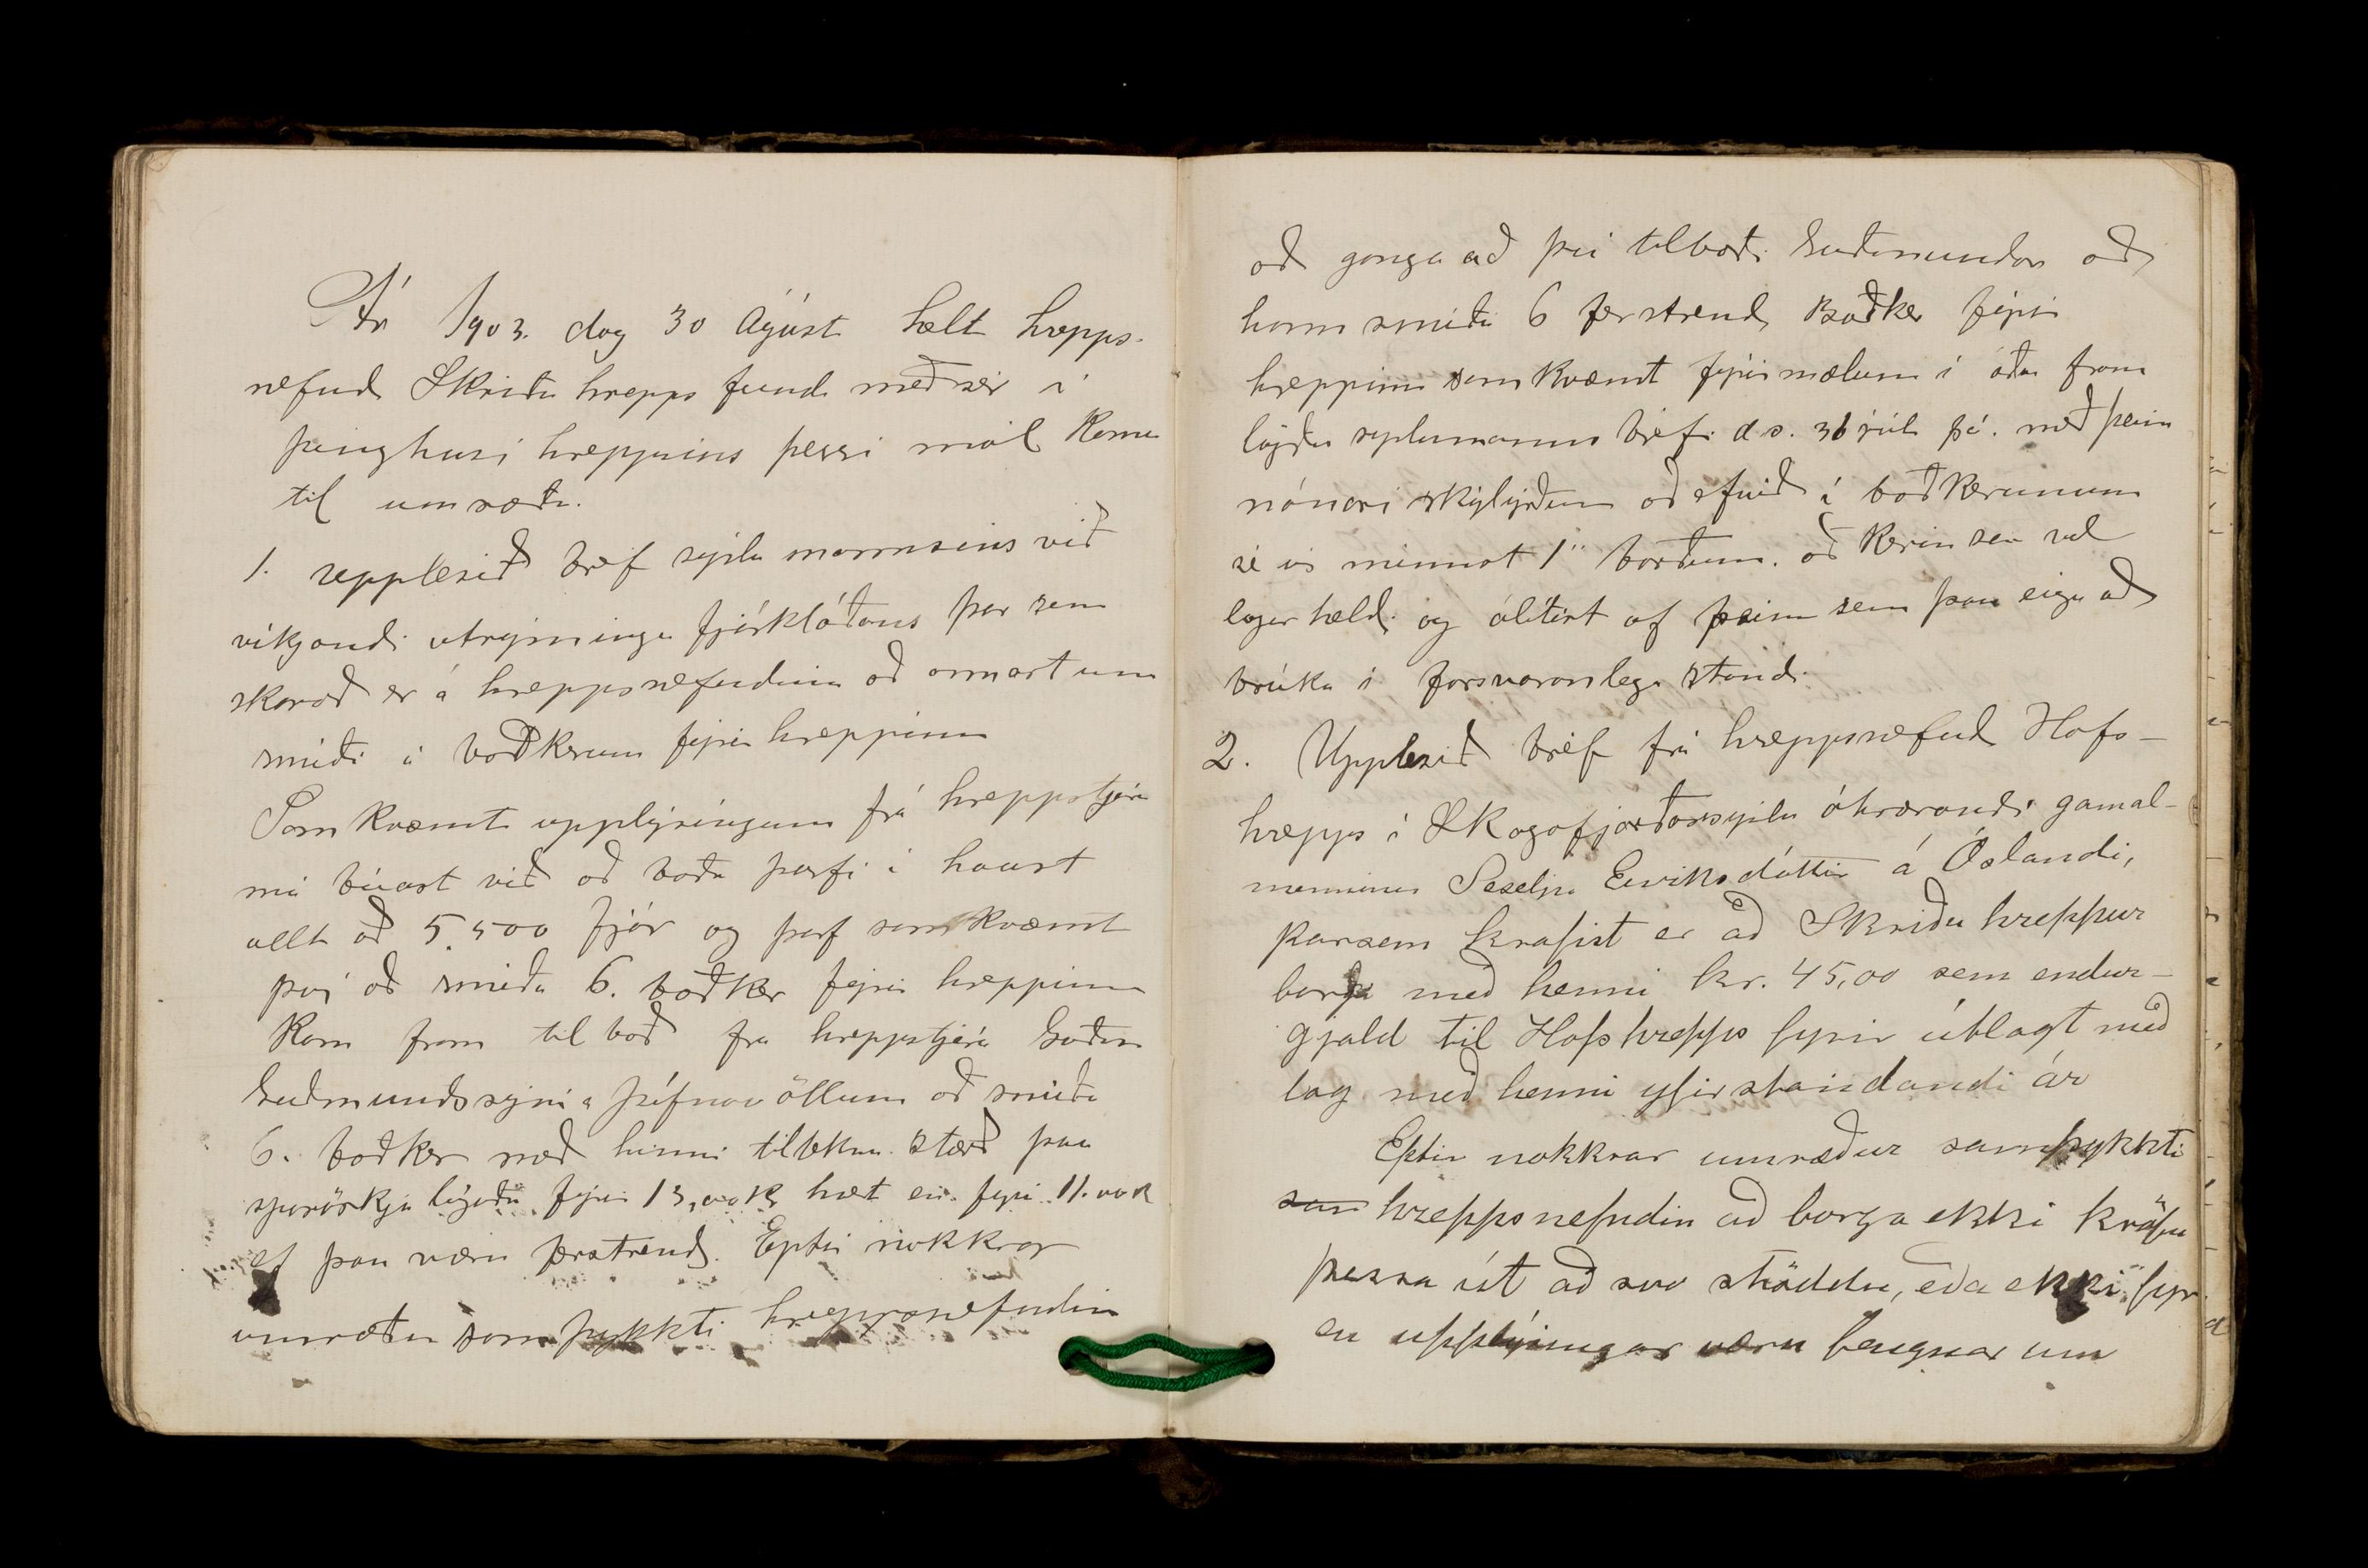 Ár 1903. dag 30 Ágúst hélt hrepps-
nefnd Skriðuhrepps fund með sér í
þinghúsi hreppsins þessi mál komu
til umræðu.
1. upplesið bréf sýslumannsins við
víkjandi utrýmingu fjárkláðans þar sem
skorað er á hreppsnefndina að annast um
smíði á baðkerum fyrir hreppinn
Samkvæmt upplýsingum frá hreppstjóra
má búast við að baða þurfi í haust
allt að 5.500 fjár og þarf samkvæmt
því að smíða 6. baðker fyrir hreppinn
Kom fram tilboð frá hreppstjóra Guðm
Guðmundssyni á Þúfnavöllum að smíða
6. baðker með hinni tilteknu stærð þau
sporöskjulöguðu fyrir 13,00 k hvert en fyri 11.00 k
ef þau væru ferstrend. Eptir nokkrar
umræður samþykkti hreppsnefndin
að ganga að því tilboði Guðmundar að
hann smíði 6 ferstrend Baðker fyrir
hreppinn samkvæmt fyrirmælum í áður fram
lögðu sýslumanns bréfi d.s. 31 júlí þ.á. með þeim
nánari skýlyrðum að efnið í baðkerunum
sé úr minnst 1" borðum. að kerin séu vel
lagarheld og álitist af þeim sem þau eiga að
brúka í forsvaranlegu standi.
2. Upplesið bréf frá hreppsnefnd Hofs-
hrepps í Skagafjarðarsýslu áhrærandi gamal-
menninu Seselju Eiríksdóttir á Óslandi,
þarsem krafist er að Skriðuhreppur
borgi með henni kr. 45,00 sem endur-
gjald til Hofshrepps fyrir útlagt með
lag með henni yfirstandandi ár
Eptir nokkrar umræður samþykkti
sam hreppsnefndin að borga ekki kröfu
þessa út að svo stöddu, eða ekki fyr
en upplýsingar væru fengnar um